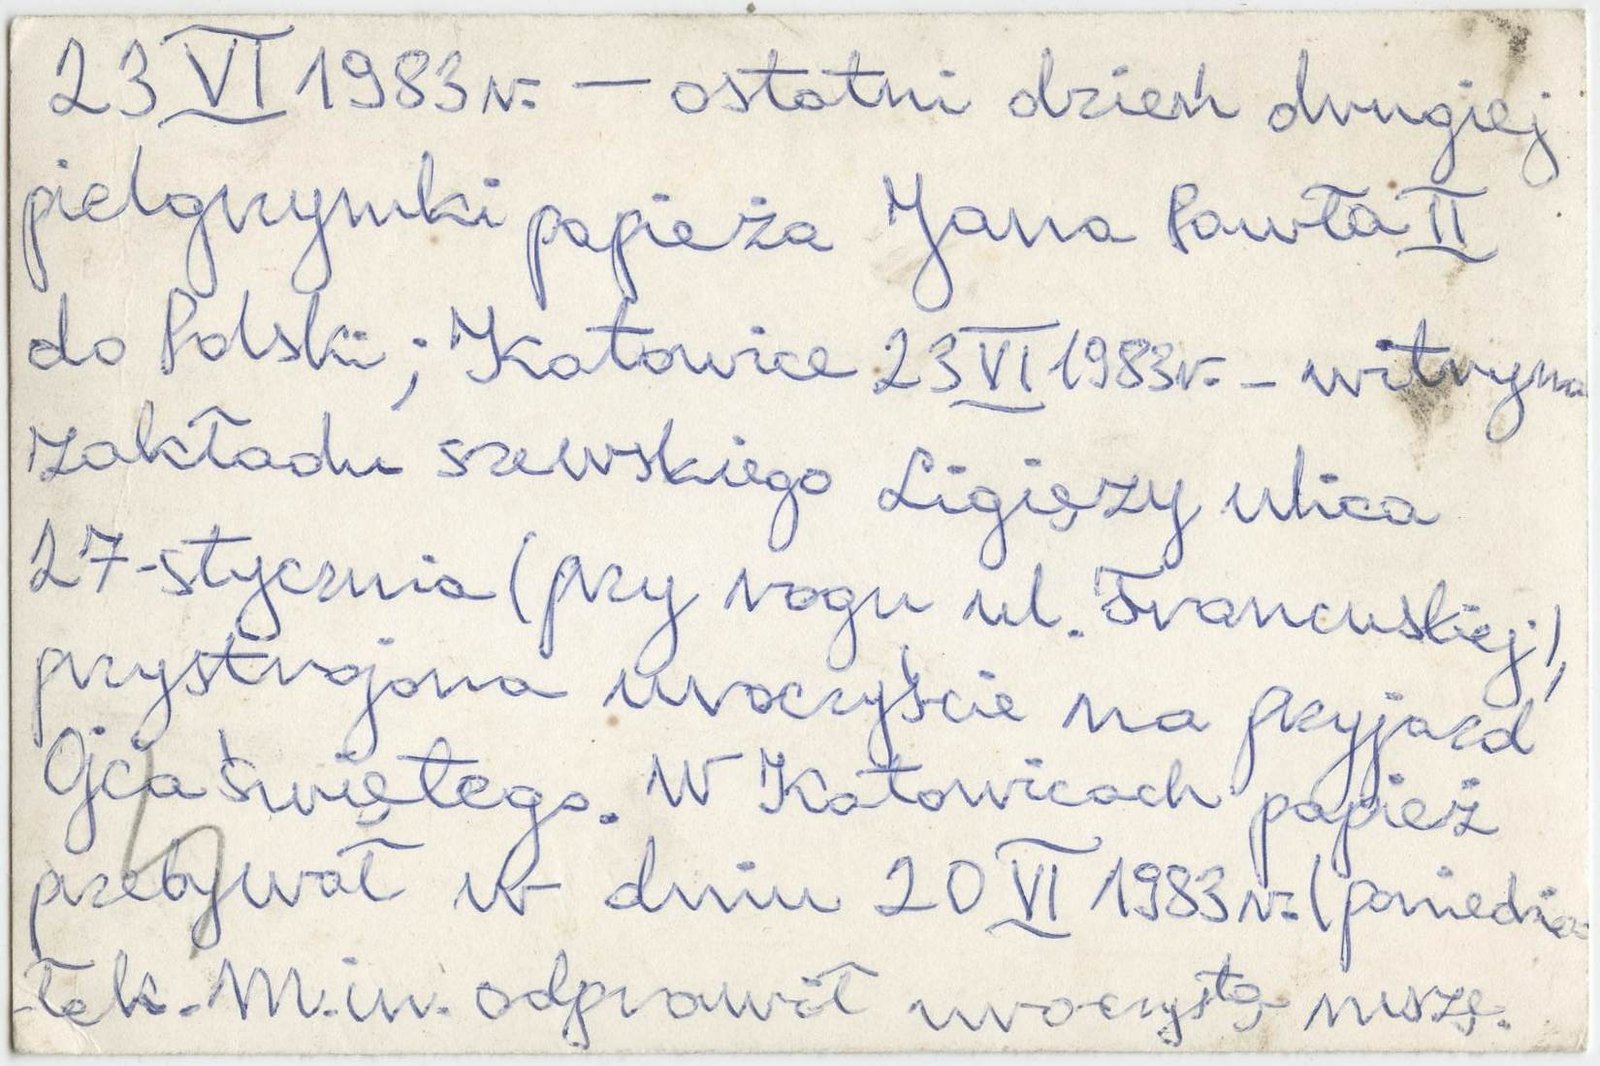 23 VI 1983r. — ostatni dzień drugiej
pielgrzymki papieża Jana Pawła II
do Polski; Katowice 23 VI 1983r. – witryna
zakładu szewskiego Ligięzy ulica
27-stycznia (przy rogu ul. Francuskiej),
przystrojona uroczyście na przyjazd
Ojca świętego. W Katowicach papież
przebywał w dniu 20 VI 1983r. (poniedzia-
-łek. M.in. odprawił uroczystą mszę.